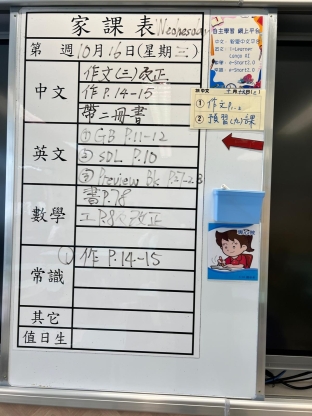 家課表 Wednesday
第 週10月16日(星期三)
中文
作文(三)改正
作 P.14-15
帶二冊書
英文
① GB P.11-12
② SDL P.10
③ Preview Bk
數學
書P.78
工P.8 改正
常識
① 作 P.14-15
其它
值日生
自主學習 網上平台
① 作文
② 預習(九)課